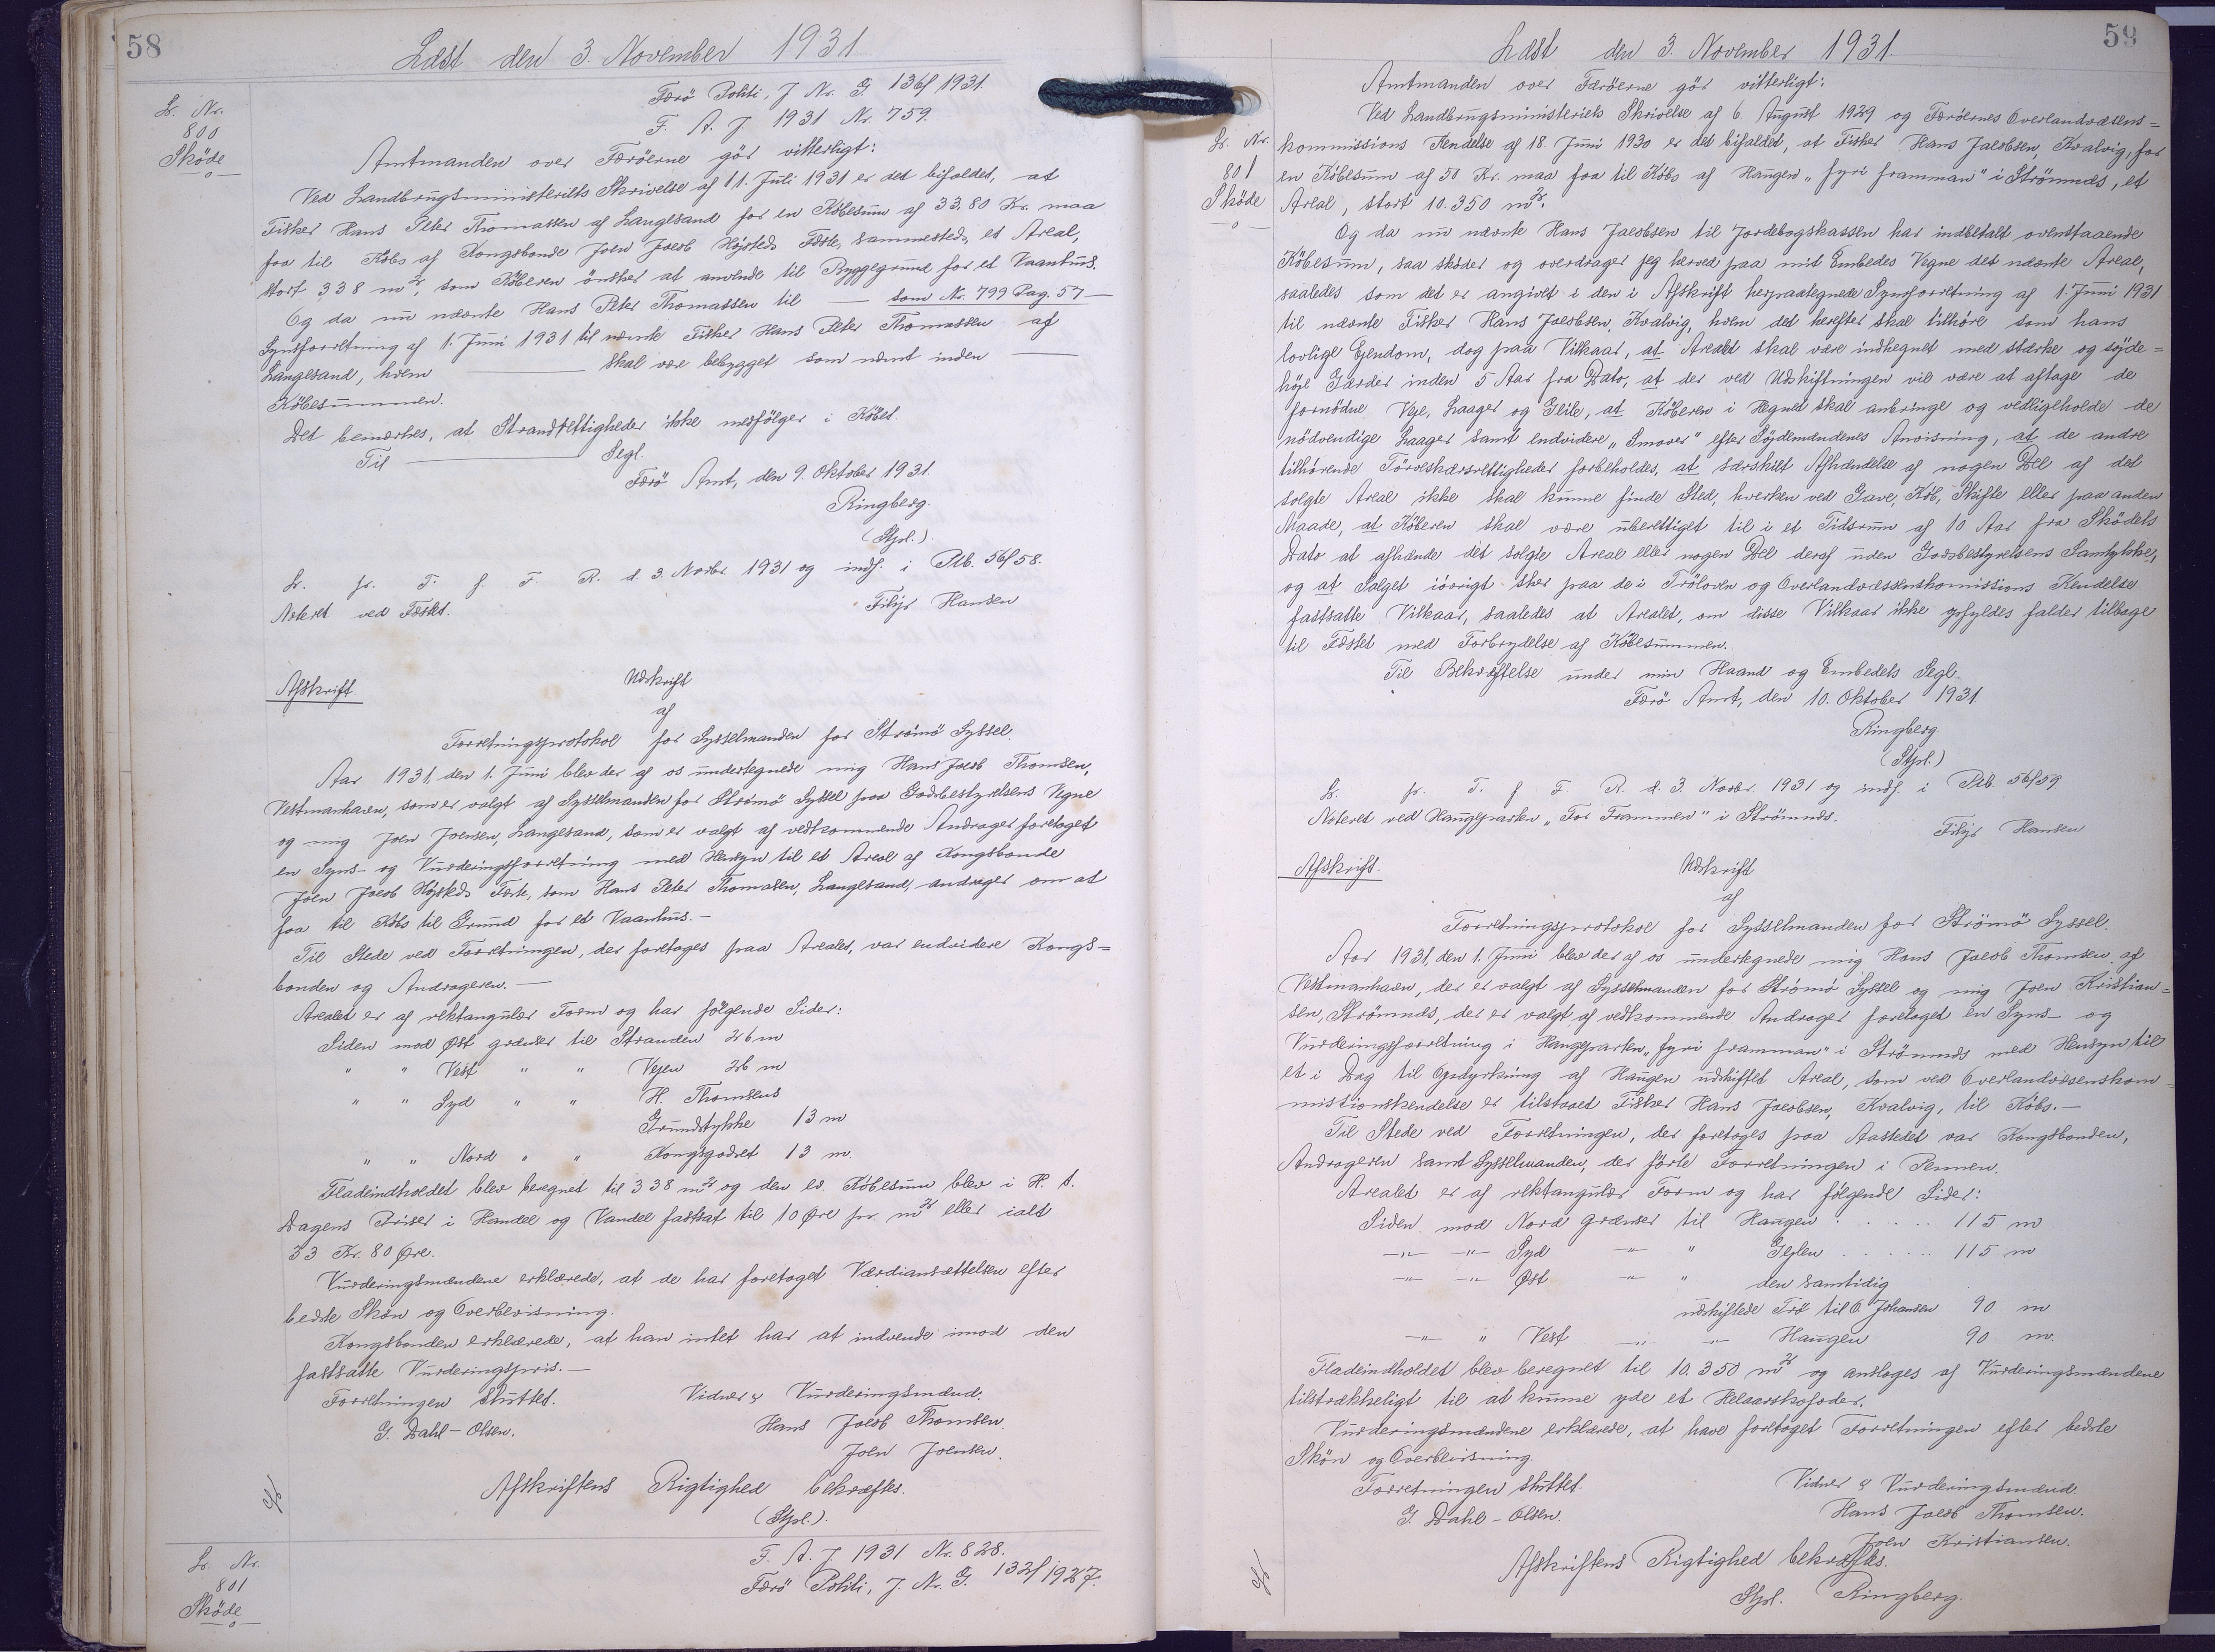 58
Læst den 3. November 1931
Færö Politi, J. Nr. G. 136/1931.
F. A. J. 1931 Nr. 759.
Lr. Nr.
800
Sköde
Amtmanden over Færöerne gör vitterligt:
Ved Landbrugsministeriets Skrivelse af 11. Juli 1931 er det bifaldet, at
Fisker Hans Peter Thomassen af Langesand for en Köbesum af 33,80 Kr. maa
faa til Köbs af Kongsbonde Joen Jacob Højsteds Fæste, sammesteds, et Areal,
stort 338 m², som Köberen önsker at anvende til Byggegrund for et Vaanhus.
Og da nu nævnte Hans Peter Thomassen til — som Nr. 799 Pag. 57 —
Synsforretning af 1. Juni 1931 til nævnte Fisker Hans Peter Thomassen af
Langesand, hvem — skal være bebygget som nævnt inden —
Köbesummen.
Det bemærkes, at Strandrettigheder ikke medfölger i Köbet.
Til — Segl.
Færö Amt, den 9. Oktober 1931.
Ringberg.
(Stpl.).
L. pr. T. f. F. R. d. 3. Novbr. 1931 og indf. i Ptb. 56/58.
Noteret ved Fæstet.
Filip Hansen
Afskrift.
Udskrift
af
Forretningsprotokol for Sysselmanden for Strömö Syssel.
Aar 1931, den 1. Juni blev der af os undertegnede mig Hans Jacob Thomsen,
Vestmanhavn, som er valgt af Sysselmanden for Strömö Syssel paa Godsbestyrelsens Vegne
og mig Joen Joensen, Langesand, som er valgt af vedkommende Andrager foretaget
en Syns- og Vurderingsforretning med Hensyn til et Areal af Kongsbonde
Joen Jacob Højsteds Fæste, som Hans Peter Thomasen, Langesand, andrager om at
faa til Köbs til Grund for et Vaanhus.-
Til Stede ved Forretningen, der foretoges paa Arealet, var endvidere Kongs=
bonden og Andrageren. —
Arealet er af rektangulær Form og har fölgende Sider:
Siden mod Øst grænser til Stranden 26 m
" " Vest " " Vejen 26 m
" " Syd " " H. Thomsens
Grundstykke 13 m
" " Nord " " Kongsgodset 13 m.
Fladeindholdet blev beregnet til 338 m² og den ev. Köbesum blev i H. t.
Dagens Priser i Handel og Vandel fastsat til 10 Øre pr. m² eller ialt
33 Kr. 80 Øre.
Vurderingsmændene erklærede, at de har foretaget Værdiansættelsen efter
bedste Skön og Overbevisning.
Kongsbonden erklærede, at han intet har at indvende imod den
fastsatte Vurderingspris.—
Forretningen sluttet.
Vidner & Vurderingsmænd.
G. Dahl-Olsen.
Hans Jacob Thomsen.
Joen Joensen.
Afskriftens Rigtighed bekræftes.
(Stpl.).
Lr. Nr.
801
Sköde
F. A. J. 1931 Nr. 828.
Færö Politi, J. Nr. G. 132/1927.
59
Læst den 3. November 1931.
Amtmanden over Færöerne gör vitterligt:
Lr. Nr.
801
Sköde
Ved Landbrugsministeriets Skrivelse af 6. August 1929 og Færöernes Overlandvæsens=
kommissions Kendelse af 18. Juni 1930 er det bifaldet, at Fisker Hans Jacobsen, Kvalvig, for
en Köbesum af 50 Kr. maa faa til Köbs af Haugen "fyri framman" i Strömnæs, et
Areal, stort 10.350 m².
Og da nu nævnte Hans Jacobsen til Jordebogskassen har indbetalt ovenstaaende
Köbesum, saa sköder og overdrager jeg herved paa mit Embedes Vegne det nævnte Areal,
saaledes som det er angivet i den i Afskrift herpaategnede Synsforretning af 1. Juni 1931
til nævnte Fisker Hans Jacobsen, Kvalvig, hvem det herefter skal tilhöre som hans
lovlige Ejendom, dog paa Vilkaar, at Arealet skal være indhegnet med stærke og söjde=
höje Gærder inden 5 Aar fra Dato, at der ved Udskiftningen vil være at aftage de
fornödne Veje, Laager og Geile, at Köberen i Hegnet skal anbringe og vedligeholde de
nödvendige Laager samt endvidere "Smover" efter Söjdemændenes Anvisning, at de andre
tilhörende Törveskærsrettigheder forbeholdes, at særskilt Afhændelse af nogen Del af det
solgte Areal ikke skal kunne finde Sted, hverken ved Gave, Köb, Skifte eller paa anden
Maade, at Köberen skal være uberettiget til i et Tidsrum af 10 Aar fra Sködets
Dato at afhænde det solgte Areal eller nogen Del deraf uden Godsbestyrelsens Samtykke,
og at Salget iövrigt sker paa de i Trölovens og Overlandvæssenskomissions Kendelse
fastsatte Vilkaar, saaledes at Arealet, om disse Vilkaar ikke opfyldes falder tilbage
til Fæstet med Forbrydelse af Köbesummen.
Til Bekræftelse under min Haand og Embedets Segl.
Færö Amt, den 10. Oktober 1931.
Ringberg
(Stpl.)
L. pr. T. f. F. R. d. 3. Novbr. 1931 og indf. i Ptb. 56/59
Noteret ved Haugeparten "For Frammen" i Strömnæs.
Filip Hansen
Afskrift.
Udskrift
af
Forretningsprotokol for Sysselmanden for Strömö Syssel.
Aar 1931, den 1. Juni blev der af os undertegnede mig Hans Jacob Thomsen, af
Vestmanhavn, der er valgt af Sysselmanden for Strömö Syssel og mig Joen Kristian=
sen, Strömnæs, der er valgt af vedkommende Andrager foretaget en Syns- og
Vurderingsforretning i Haugeparten "fyri framman" i Strömnæs med Hensyn til
et i Dag til Opdyrkning af Haugen udskiftet Areal, som ved Overlandvæsenskom=
missionskendelse er tilstaaet Fisker Hans Jacobsen, Kvalvig, til Köbs.—
Til Stede ved Forretningen, der foretoges paa Aastedet var Kongsbonden,
Andrageren samt Sysselmanden, der förte Forretningen i Pennen.
Arealet er af rektangulær Form og har fölgende Sider:
Siden mod Nord grænser til Haugen . . . . . 115 m
—"— —"— Syd —"— " Gejlen . . . . . 115 m
—"— —"— Øst —"— " den samtidig
udskiftede Trö til O. Johansen 90 m
—"— " Vest —"— —"— Haugen 90 m.
Fladeindholdet blev beregnet til 10.350 m² og ansloges af Vurderingsmændene
tilstrækkeligt til at kunne yde et Helaarskofoder.
Vurderingsmændene erklærede, at have foretaget Forretningen efter bedste
Skön og Overbevisning.
Forretningen sluttet.
Vidner & Vurderingsmænd.
G. Dahl-Olsen.
Hans Jacob Thomsen.
Joen Kristiansen.
Afskriftens Rigtighed bekræftes.
Stpl. Ringberg.